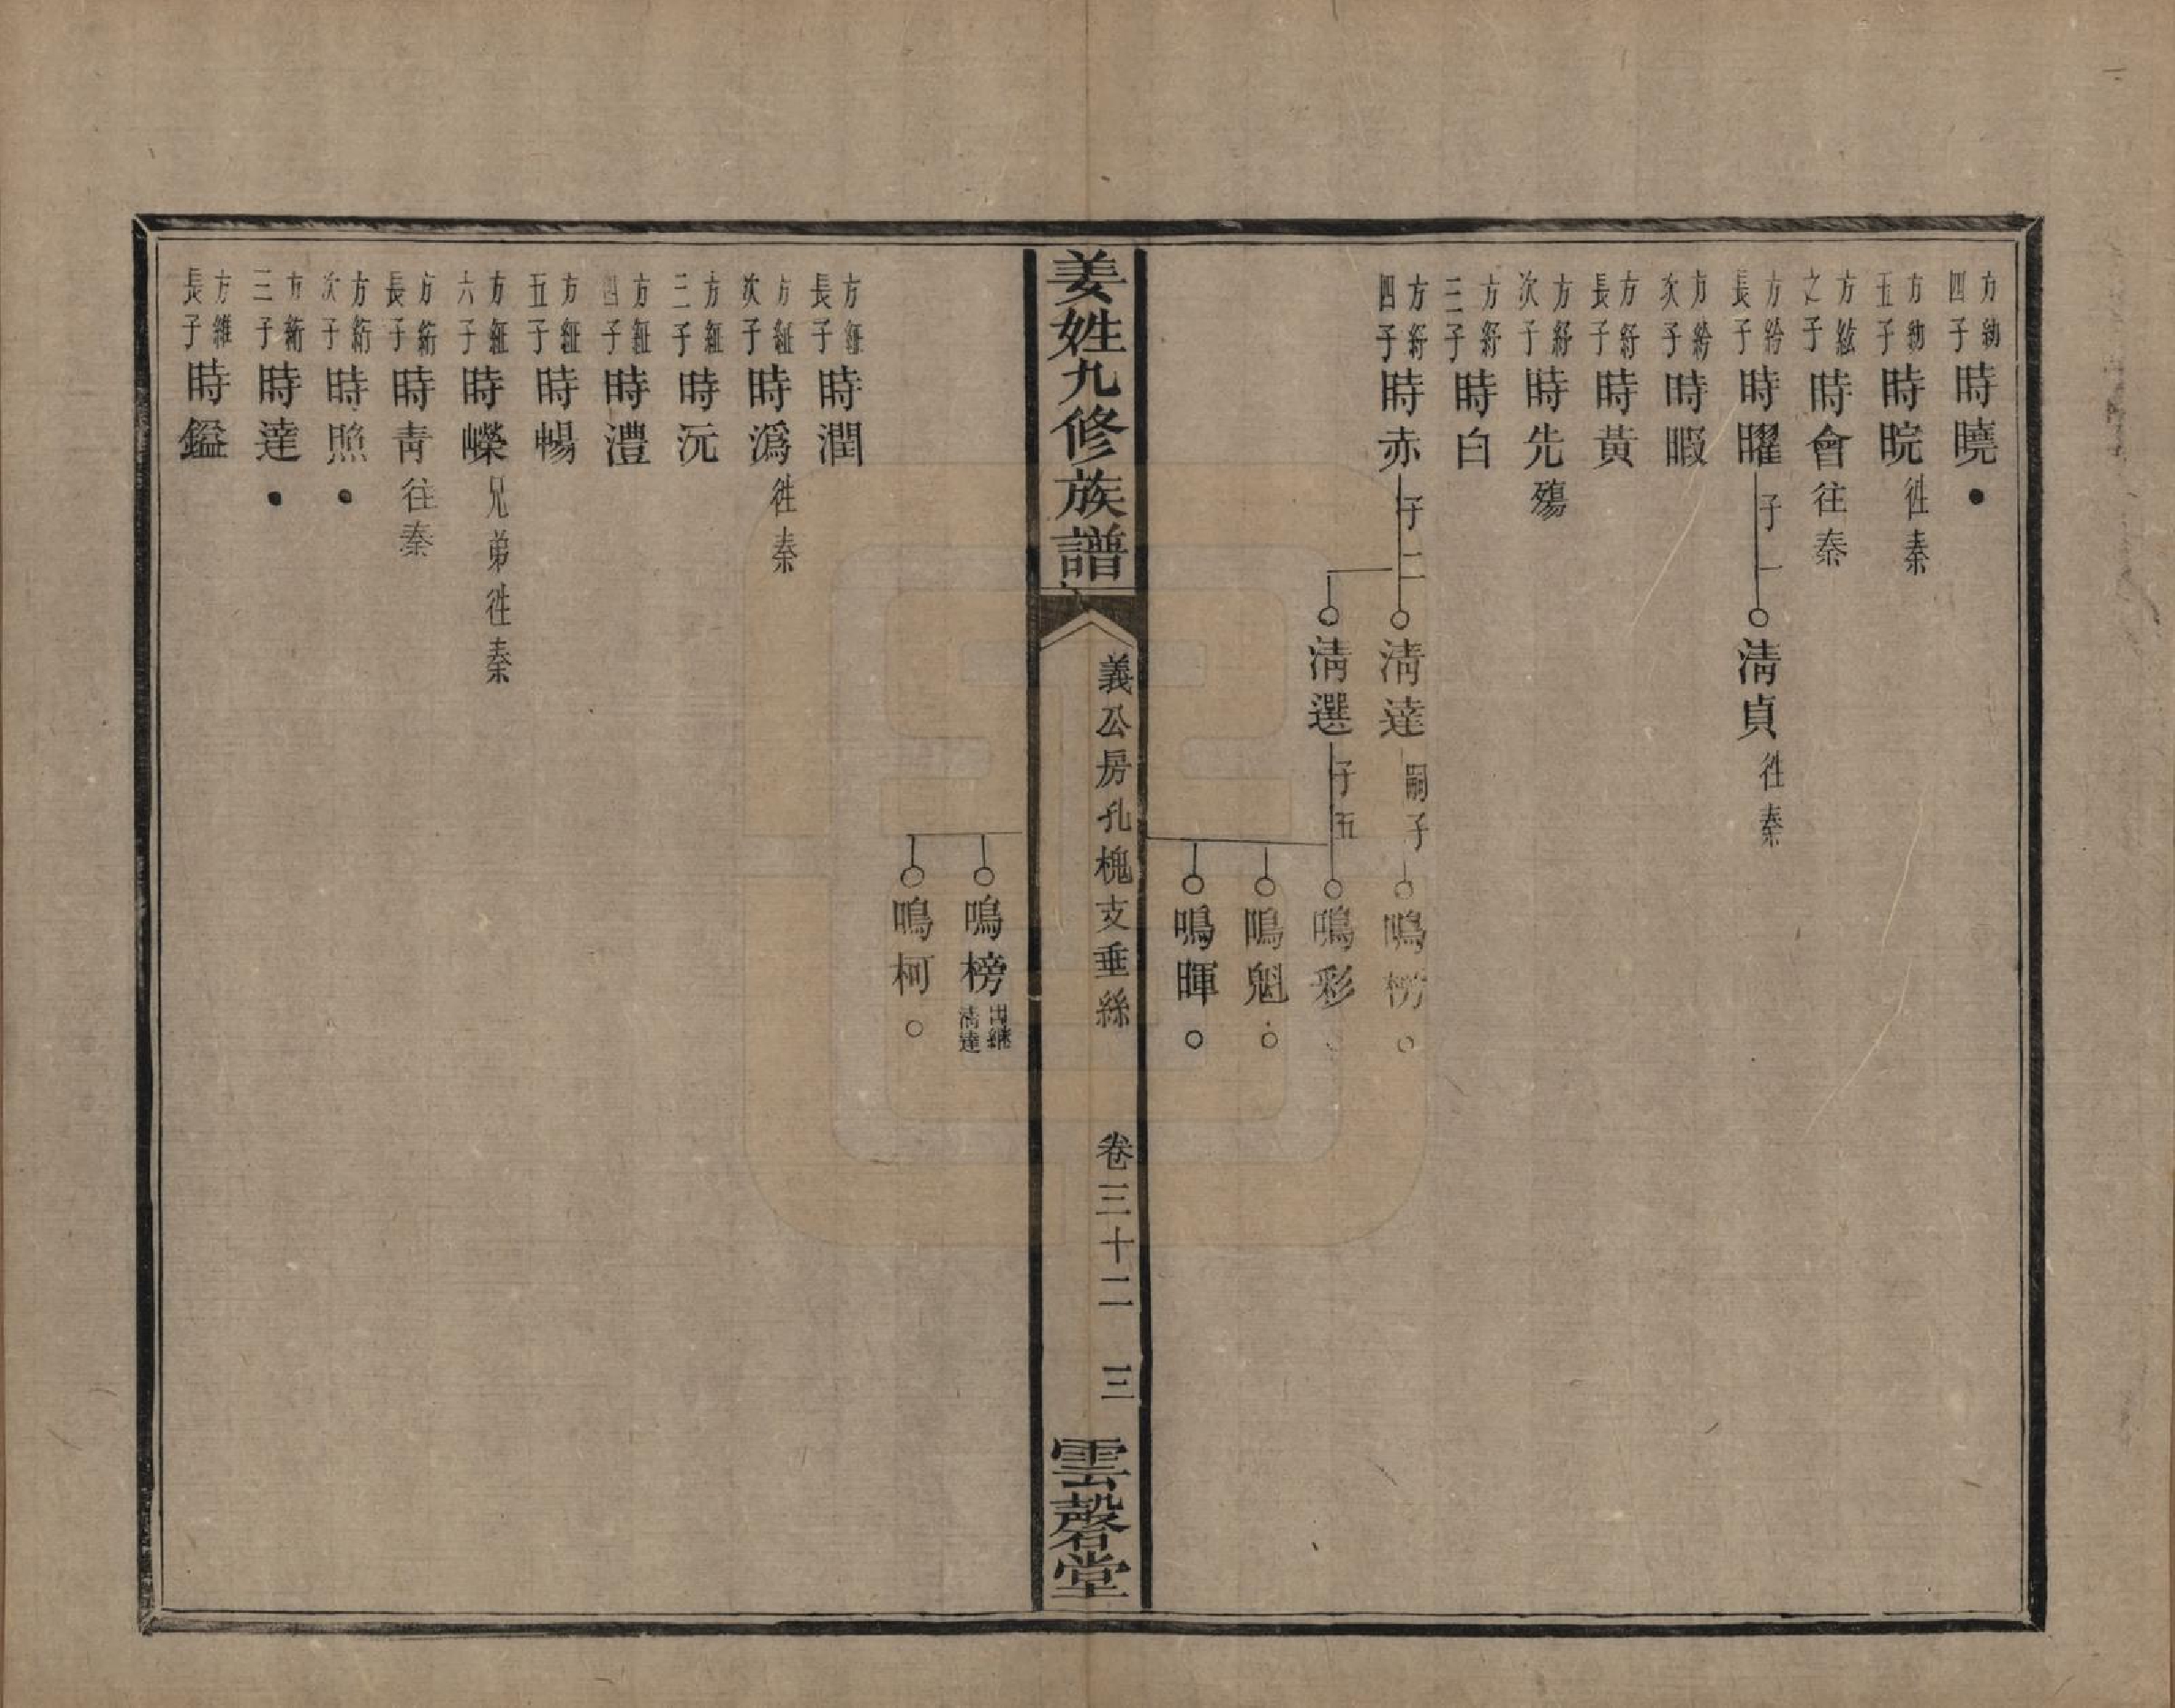 方紨四子時曉
方紨五子時晥徃秦
方紘之子時會往秦
方紟長子時曜子一 清貞徃秦
方紟次子時暇
方紆長子時黃
方紆次子時先殤
方紆三子時白
方紆四子時赤子二 清達嗣子 鳴榜
清選子五 鳴彩
鳴魁
鳴暉
姜姓九修族譜 義公房孔槐支垂絲 卷三十二 三 雲磬堂
鳴榜出繼清達
鳴柯
方綎長子時潤
方綎次子時潙徃秦
方綎三子時沅
方綎四子時澧
方綎五子時暢
方綎六子時嶸兄弟徃秦
方絎長子時青往秦
方絎次子時照
方絎三子時達
方維長子時鎰